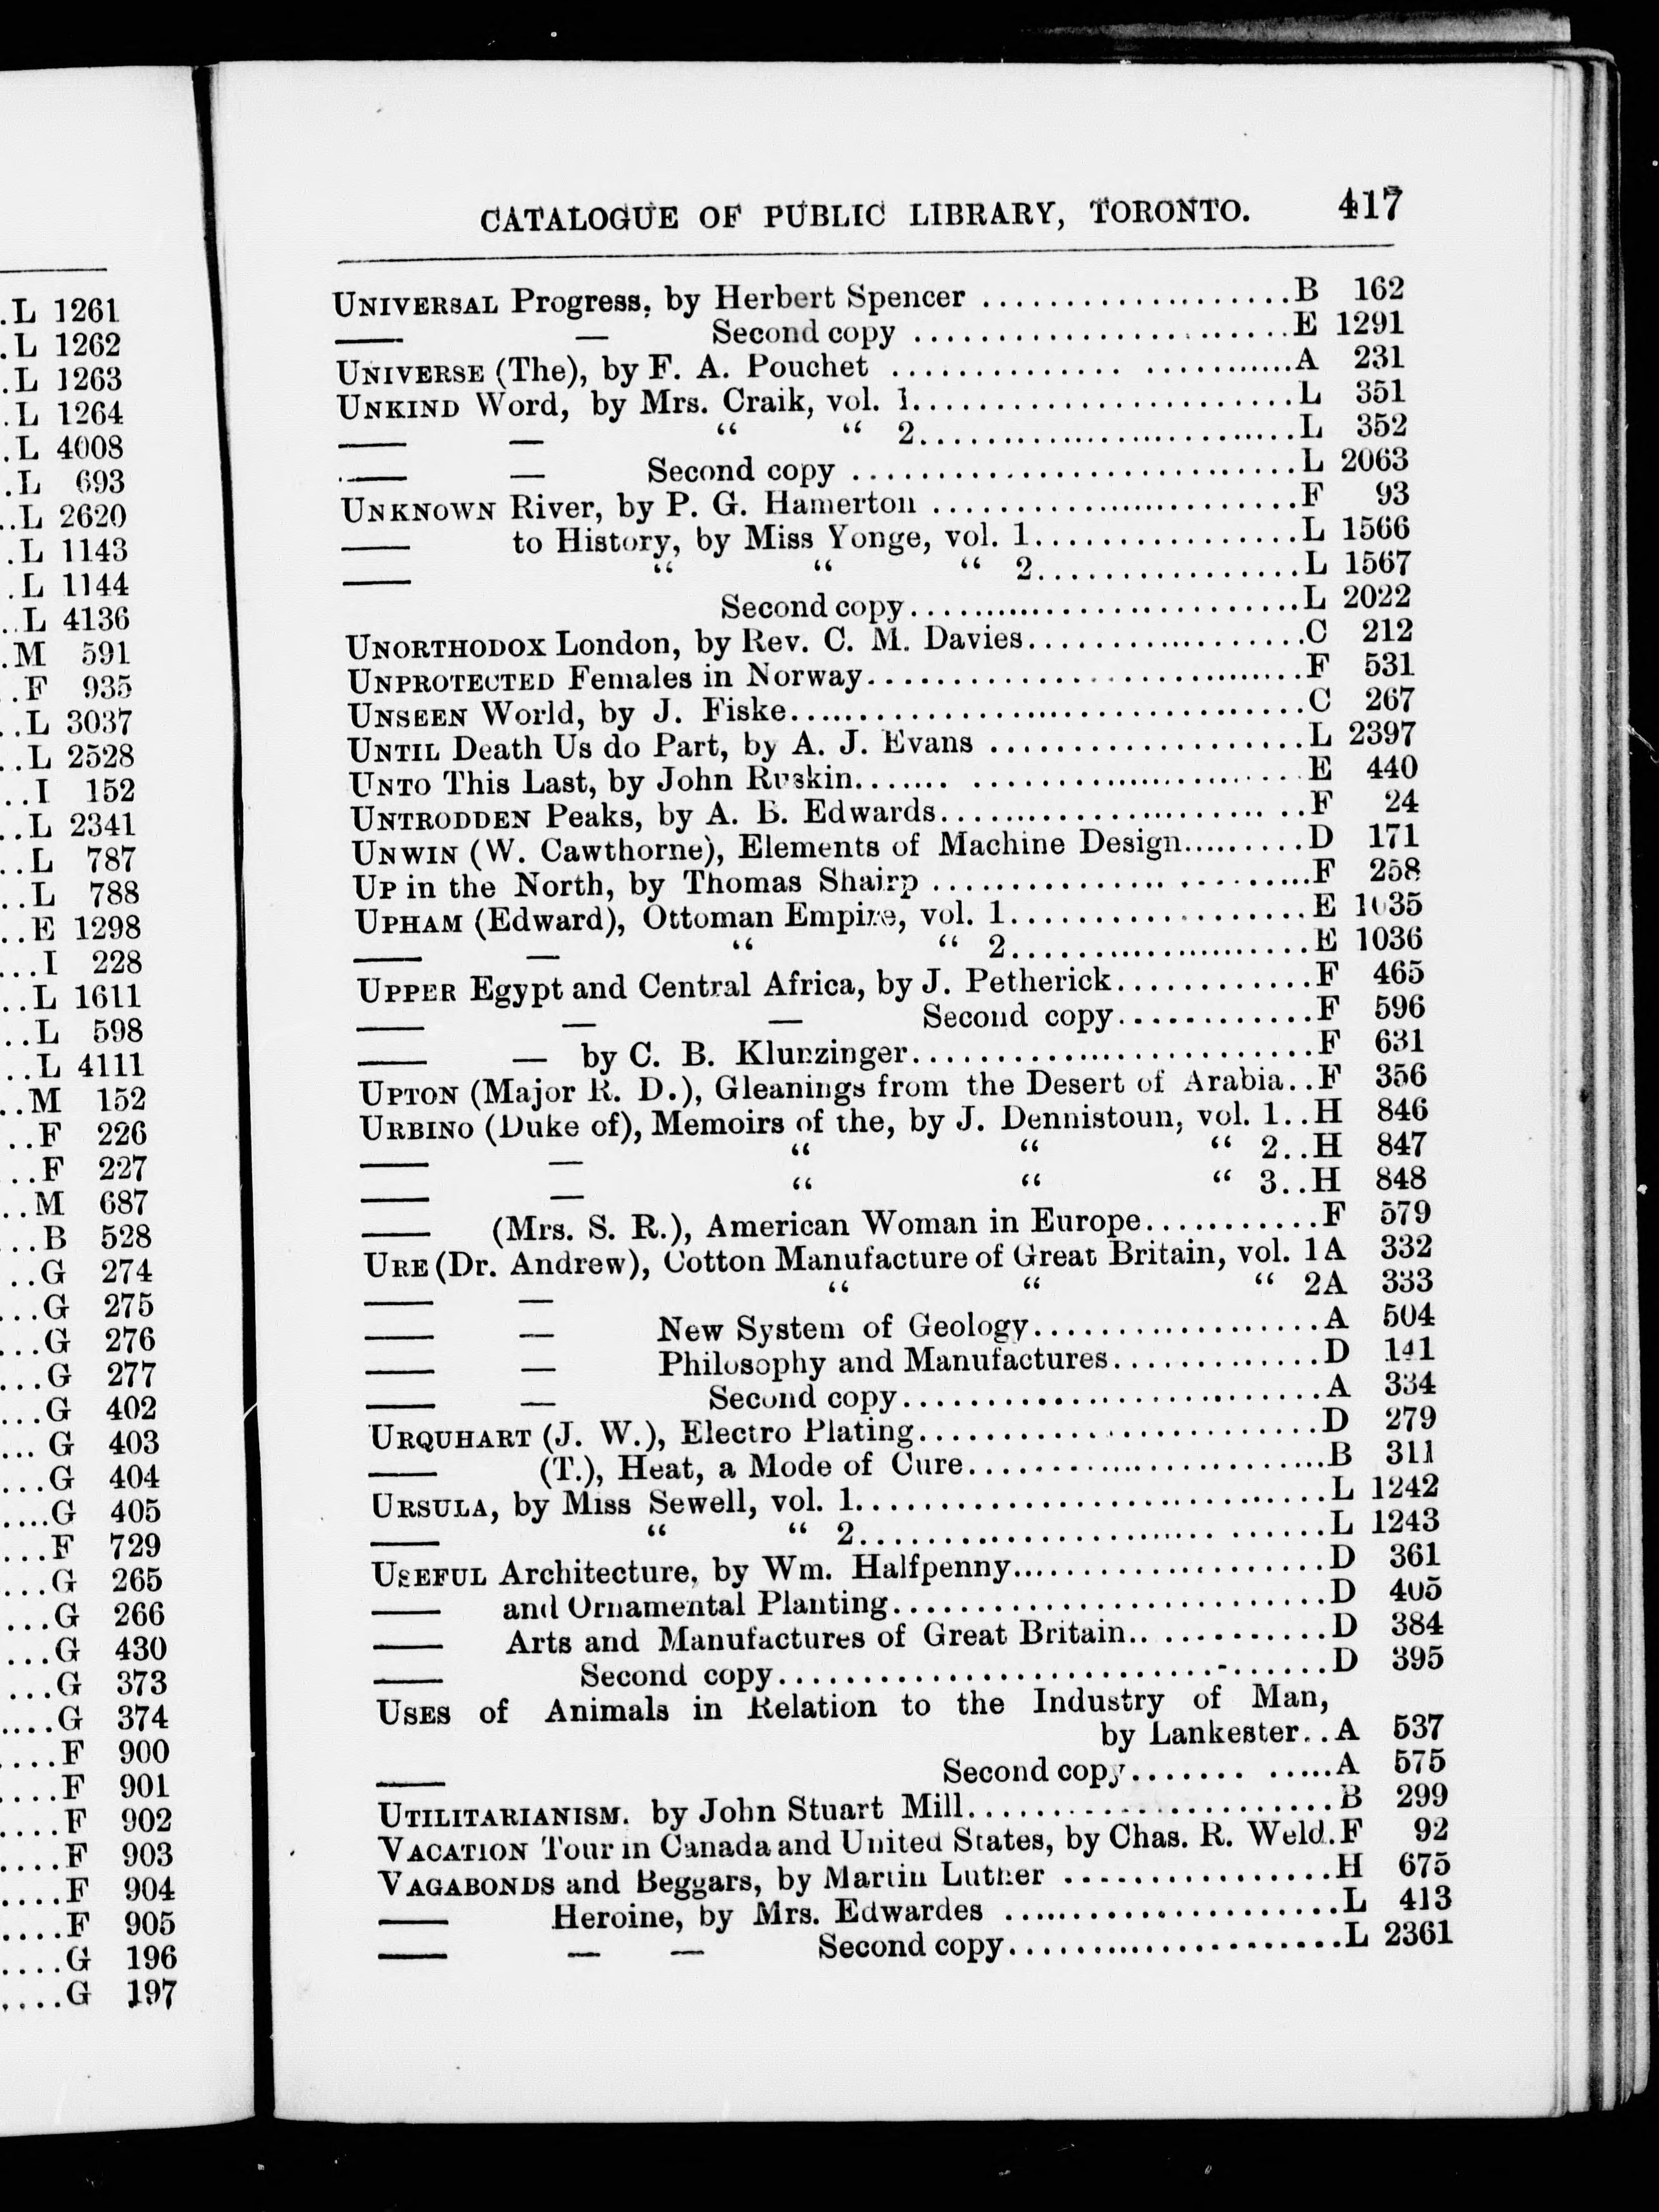 .L 1261
.L 1262
.L 1263
.L 1264
.L 4008
.L 693
..L 2620
.L 1143
.L 1144
..L 4136
.M 591
..F 935
..L 3037
..L 2528
...I 152
..L 2341
...L 787
...L 788
..E 1298
...I 228
..L 1611
...L 598
..L 4111
..M 152
...F 226
...F 227
..M 687
...B 528
...G 274
...G 275
...G 276
...G 277
...G 402
... G 403
....G 404
....G 405
....F 729
....G 265
....G 266
....G 430
....G 373
....G 374
....F 900
....F 901
....F 902
....F 903
....F 904
....F 905
....G 196
....G 197
CATALOGUE OF PUBLIC LIBRARY, TORONTO. 417
UNIVERSAL Progress, by Herbert Spencer ....................B 162
—— — Second copy ......................E 1291
UNIVERSE (The), by F. A. Pouchet ............... ...........A 231
UNKIND Word, by Mrs. Craik, vol. 1.........................L 351
—— — “ “ 2.........................L 352
—— — Second copy ............................L 2063
UNKNOWN River, by P. G. Hamerton .......................F 93
—— to History, by Miss Yonge, vol. 1.................L 1566
—— “ “ “ 2.................L 1567
Second copy.............................L 2022
UNORTHODOX London, by Rev. C. M. Davies...................C 212
UNPROTECTED Females in Norway............................F 531
UNSEEN World, by J. Fiske..................................C 267
UNTIL Death Us do Part, by A. J. Evans ....................L 2397
UNTO This Last, by John Ruskin....... .....................E 440
UNTRODDEN Peaks, by A. B. Edwards.........................F 24
UNWIN (W. Cawthorne), Elements of Machine Design.........D 171
UP in the North, by Thomas Shairp .........................F 258
UPHAM (Edward), Ottoman Empire, vol. 1...................E 1035
—— — “ “ 2....................E 1036
UPPER Egypt and Central Africa, by J. Petherick............F 465
—— — — Second copy............F 596
—— — by C. B. Klunzinger..........................F 631
UPTON (Major R. D.), Gleanings from the Desert of Arabia..F 356
URBINO (Duke of), Memoirs of the, by J. Dennistoun, vol. 1..H 846
—— — “ “ “ 2..H 847
—— — “ “ “ 3..H 848
—— (Mrs. S. R.), American Woman in Europe...........F 579
URE (Dr. Andrew), Cotton Manufacture of Great Britain, vol. 1A 332
—— — “ “ “ 2A 333
—— — New System of Geology...................A 504
—— — Philosophy and Manufactures..............D 141
—— — Second copy...........................A 334
URQUHART (J. W.), Electro Plating..........................D 279
—— (T.), Heat, a Mode of Cure.......................B 311
URSULA, by Miss Sewell, vol. 1..............................L 1242
—— “ “ 2.............................L 1243
USEFUL Architecture, by Wm. Halfpenny.....................D 361
—— and Ornamental Planting............................D 405
—— Arts and Manufactures of Great Britain.............D 384
—— Second copy..................................D 395
USES of Animals in Relation to the Industry of Man,
by Lankester..A 537
—— Second copy....... .....A 575
UTILITARIANISM. by John Stuart Mill........................B 299
VACATION Tour in Canada and United States, by Chas. R. Weld.F 92
VAGABONDS and Beggars, by Martin Luther .................H 675
—— Heroine, by Mrs. Edwardes ......................L 413
—— — — Second copy......................L 2361